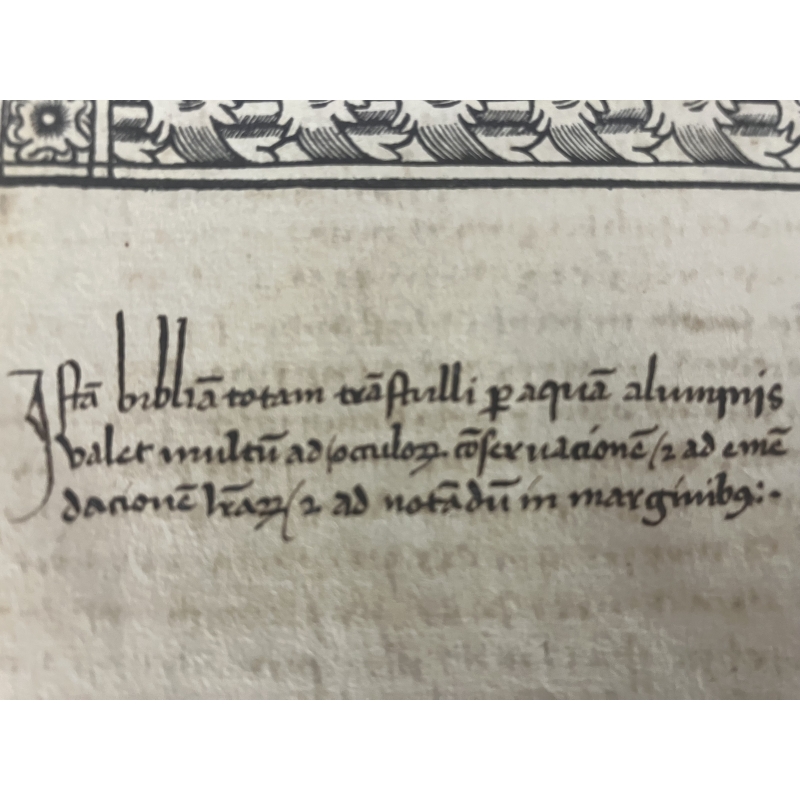 Istā bibliā totam trāſtulli ꝑ aquā aluminis
valet multū ad / oculoꝝ cōſeruacionē / ⁊ ad emē
dacionē lr̄aꝝ / ⁊ ad notādū in marginibꝫ:·